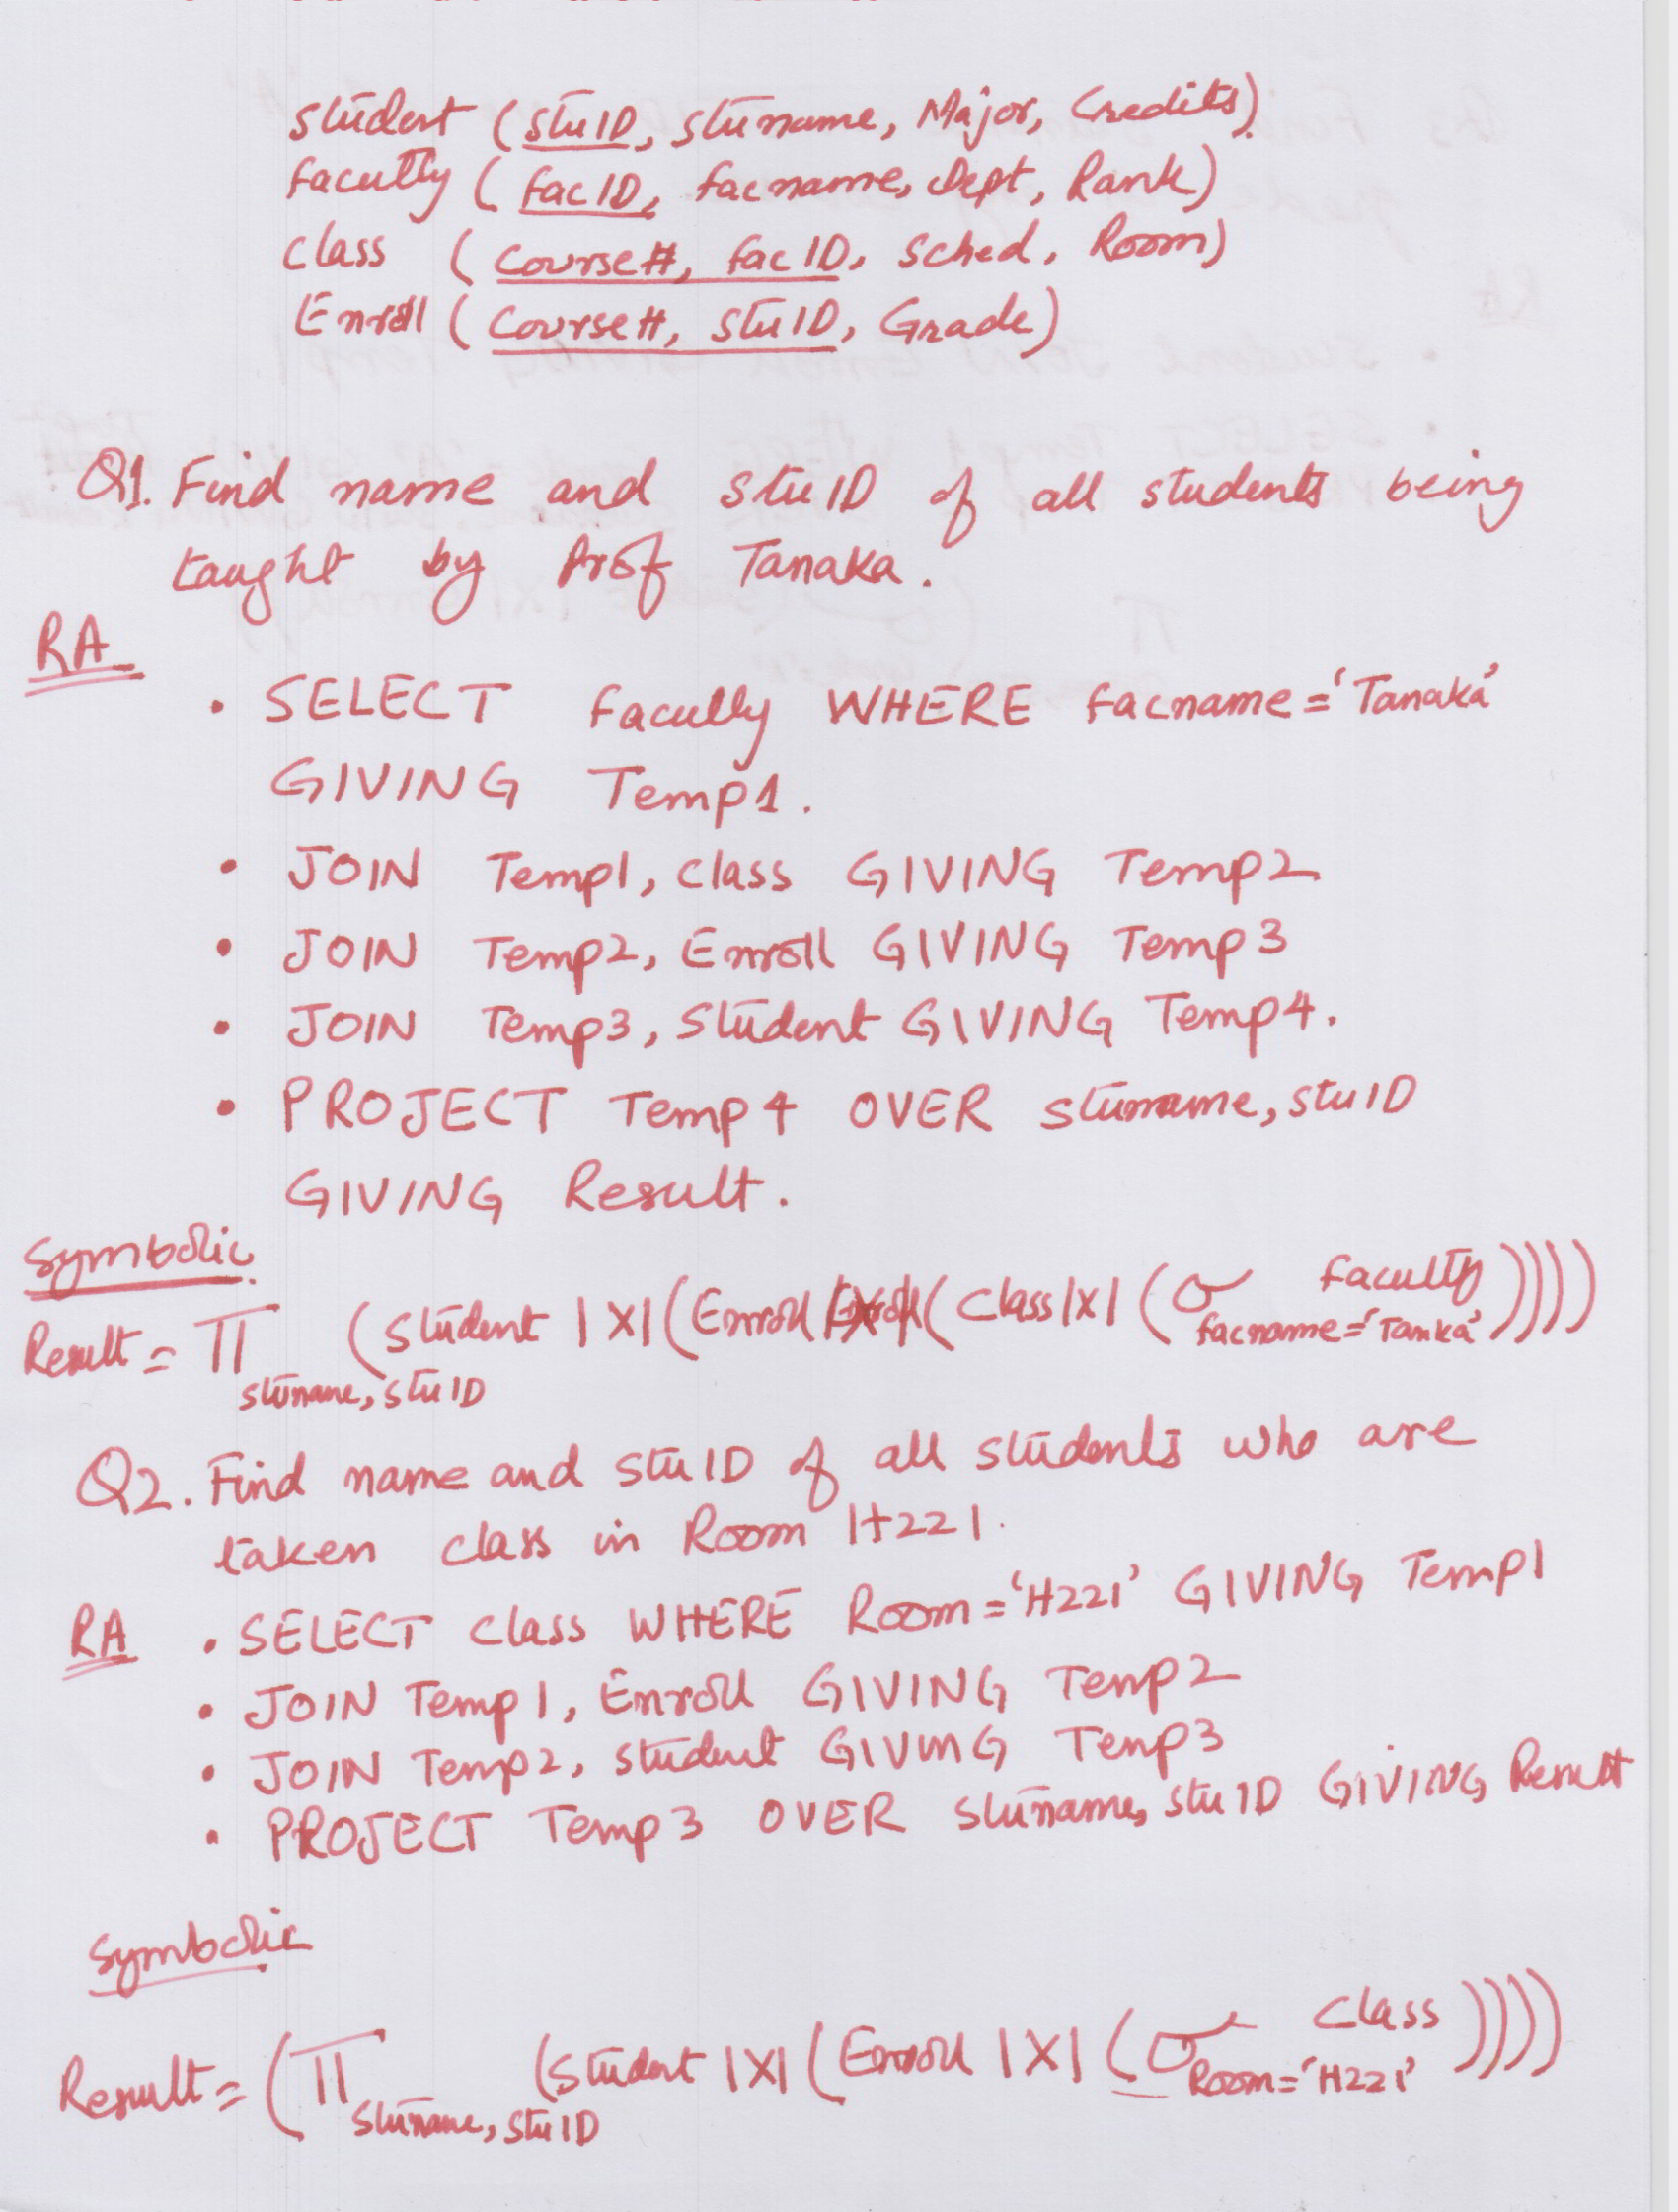 Student (stuID, stuname, Major, Credits).
faculty (facID, facname, Dept, Rank)
class (course#, facID, sched, Room)
Enroll (course#, stuID, Grade)
Q1. Find name and stuID of all students being
taught by Prof Tanaka.
RA
• SELECT faculty WHERE facname='Tanaka'
GIVING Temp1.
• JOIN Temp1, class GIVING Temp2
• JOIN Temp2, Enroll GIVING Temp3
• JOIN Temp3, Student GIVING Temp4.
• PROJECT Temp4 OVER stuname, stuID
GIVING Result.
Symbolic
Result = Π stuname, stuID (Student |X| (Enroll |X| (Class |X| (σ facname='Tanka' faculty))))
Q2. Find name and stuID of all students who are
taken class in Room H221.
RA • SELECT class WHERE Room='H221' GIVING Temp1
• JOIN Temp1, Enroll GIVING Temp2
• JOIN Temp2, student GIVING Temp3
• PROJECT Temp3 OVER stuname, stuID GIVING Result
Symbolic
Result = (Π stuname, stuID (Student |X| (Enroll |X| (σ Room='H221' Class))))